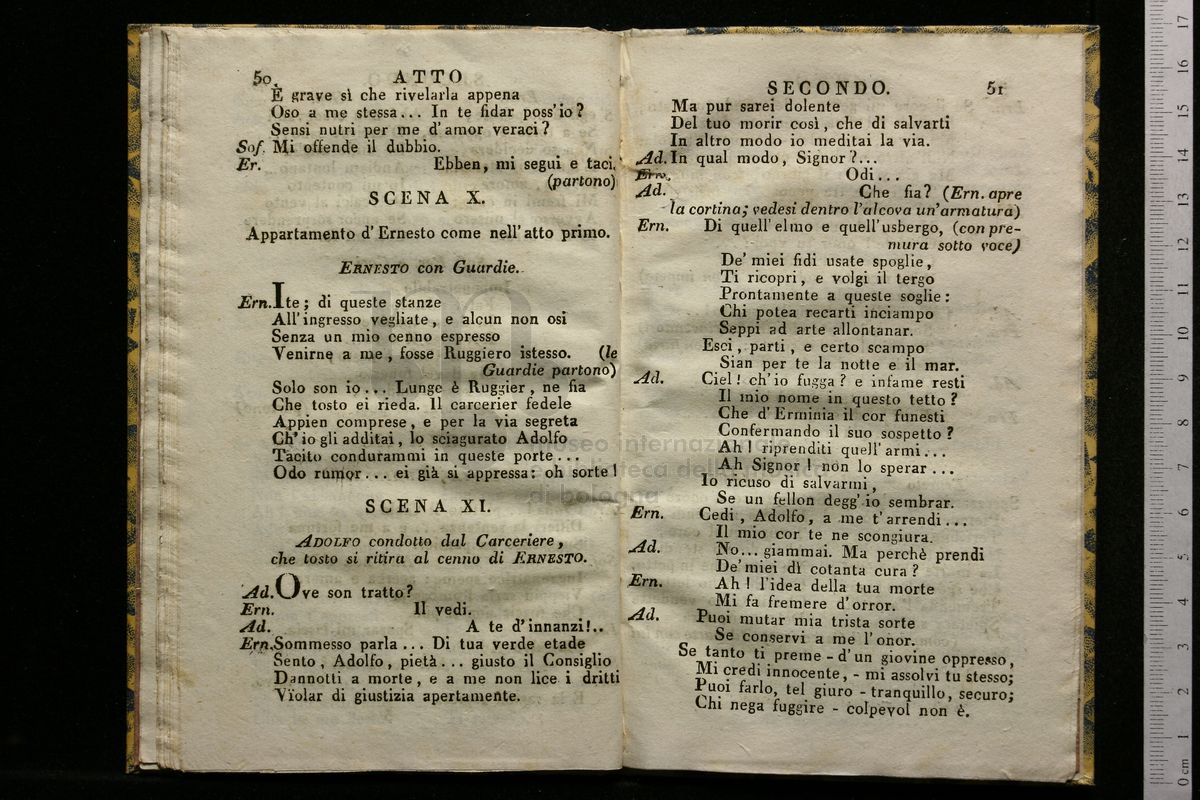 50. ATTO
È grave sì che rivelarla appena
Oso a me stessa... In te fidar poss'io?
Sensi nutri per me d'amor veraci?
Sof. Mi offende il dubbio.
Er. Ebben, mi segui e taci.
(partono)
SCENA X.
Appartamento d'Ernesto come nell'atto primo.
ERNESTO con Guardie.
Ern. Ite; di queste stanze
All'ingresso vegliate, e alcun non osi
Senza un mio cenno espresso
Venirne a me, fosse Ruggiero istesso. (le
Guardie partono)
Solo son io... Lunge è Ruggier, ne fia
Che tosto ei rieda. Il carcerier fedele
Appien comprese, e per la via segreta
Ch'io gli additai, lo sciagurato Adolfo
Tacito condurammi in queste porte...
Odo rumor... ei già si appressa: oh sorte!
SCENA XI.
ADOLFO condotto dal Carceriere,
che tosto si ritira al cenno di ERNESTO.
Ad. Ove son tratto?
Ern. Il vedi.
Ad. A te d'innanzi!..
Ern. Sommesso parla... Di tua verde etade
Sento, Adolfo, pietà... giusto il Consiglio
Dannotti a morte, e a me non lice i dritti
Violar di giustizia apertamente.
SECONDO. 51
Ma pur sarei dolente
Del tuo morir così, che di salvarti
In altro modo io meditai la via.
Ad. In qual modo, Signor?...
Ern. Odi...
Ad. Che fia? (Ern. apre
la cortina; vedesi dentro l'alcova un'armatura)
Ern. Di quell'elmo e quell'usbergo, (con pre-
mura sotto voce)
De' miei fidi usate spoglie,
Ti ricopri, e volgi il tergo
Prontamente a queste soglie:
Chi potea recarti inciampo
Seppi ad arte allontanar.
Esci, parti, e certo scampo
Sian per te la notte e il mar.
Ad. Ciel! ch'io fugga? e infame resti
Il mio nome in questo tetto?
Che d'Erminia il cor funesti
Confermando il suo sospetto?
Ah! riprenditi quell'armi...
Ah Signor! non lo sperar...
Io ricuso di salvarmi,
Se un fellon degg'io sembrar.
Ern. Cedi, Adolfo, a me t'arrendi...
Il mio cor te ne scongiura.
Ad. No... giammai. Ma perchè prendi
De' miei dì cotanta cura?
Ern. Ah! l'idea della tua morte
Mi fa fremere d'orror.
Ad. Puoi mutar mia trista sorte
Se conservi a me l'onor.
Se tanto ti preme - d'un giovine oppresso,
Mi credi innocente, - mi assolvi tu stesso;
Puoi farlo, tel giuro - tranquillo, securo;
Chi nega fuggire - colpevol non è.
museo internazionale
e biblioteca della musica
di bologna
0 cm 1 2 3 4 5 6 7 8 9 10 11 12 13 14 15 16 17